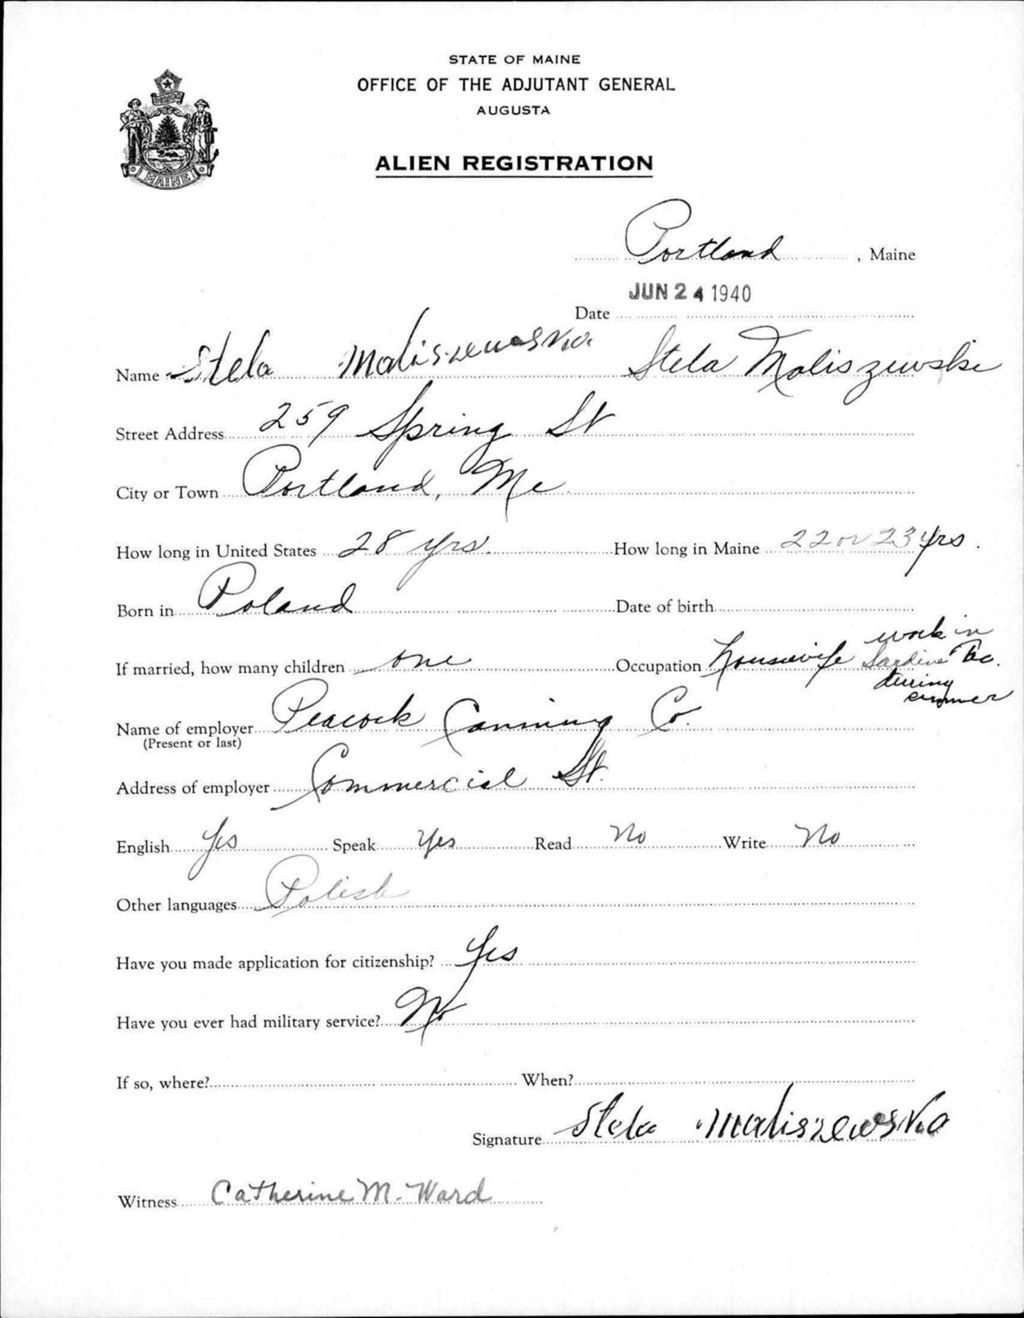 STATE OF MAINE
OFFICE OF THE ADJUTANT GENERAL
AUGUSTA
ALIEN REGISTRATION
MAINE
Portland, Maine
Date JUN 24 1940
Name Stela Maliszewska Stela Maliszewske
Street Address 259 Spring St
City or Town Portland, Me
How long in United States 28 yrs. How long in Maine 22 or 23 yrs.
Born in Poland Date of birth
If married, how many children one Occupation housewife work in Sardine Fac. during summer
Name of employer Peacock Canning Co.
(Present or last)
Address of employer Commercial St.
English Yes Speak Yes Read No Write No
Other languages Polish
Have you made application for citizenship? Yes
Have you ever had military service? No
If so, where? When?
Signature Stela Maliszewska
Witness Catherine M. Ward